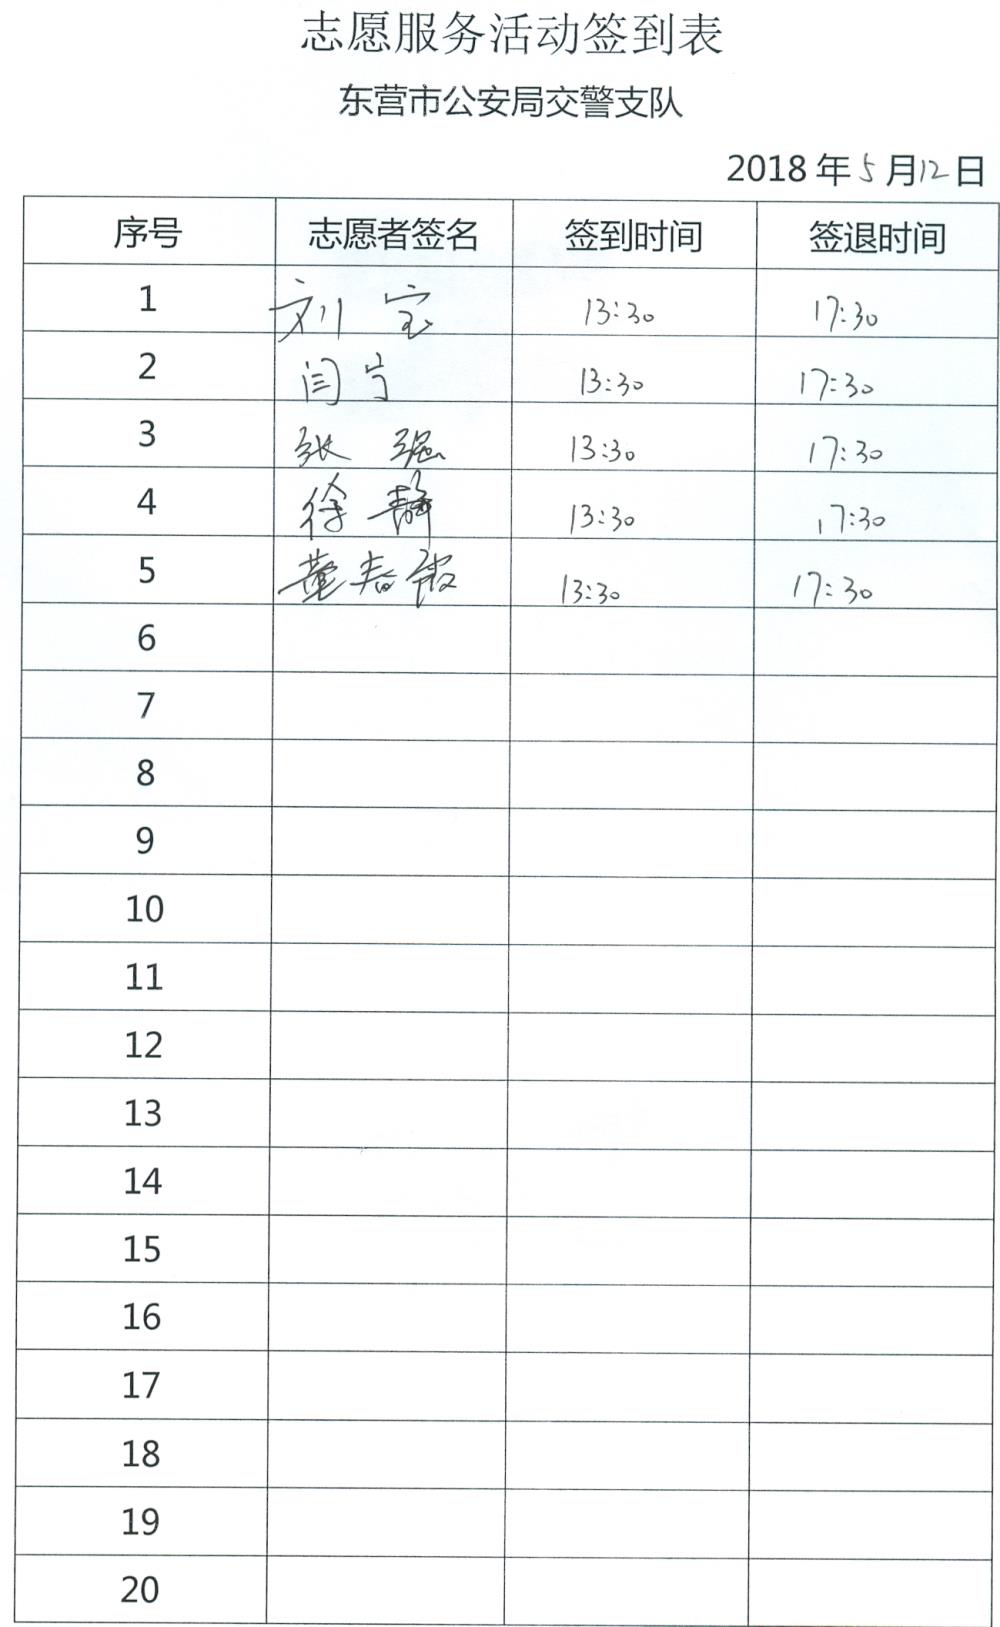 志愿服务活动签到表
东营市公安局交警支队
2018 年 5 月 12 日
序号 志愿者签名 签到时间 签退时间
1 刘宝 13:30 17:30
2 闫宁 13:30 17:30
3 张强 13:30 17:30
4 徐静 13:30 17:30
5 董春霞 13:30 17:30
6
7
8
9
10
11
12
13
14
15
16
17
18
19
20